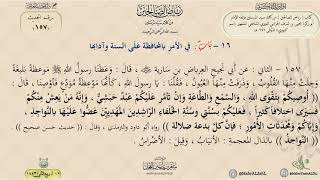 رياض الصالحين
رقم الحديث
١٥٧
١٦ - باب: في الأمر بالمحافظة على السنة وآدابها
١٥٧ - الثاني: عن أبي نجيح العرباض بن سارية ، قال: وعظنا رسول الله ﷺ موعظة بليغة
وجلت منها القلوب، وذرفت منها العيون، فقلنا: يا رسول الله، كأنها موعظة مودع فأوصنا، قال:
((أوصيكم بتقوى الله، والسمع والطاعة وإن تأمر عليكم عبد حبشي، وإنه من يعش منكم
فسيرى اختلافا كثيرا، فعليكم بسنتي وسنة الخلفاء الراشدين المهديين عضوا عليها بالنواجذ،
وإياكم ومحدثات الأمور؛ فإن كل بدعة ضلالة)) رواه أبو داود والترمذي، وقال: (حديث حسن صحيح)
((النواجذ)) بالذال المعجمة: الأنياب، وقيل: الأضراس.